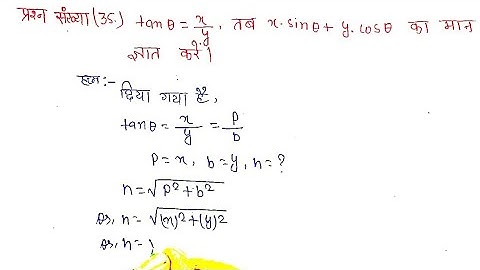 प्रश्न संख्या (35.) tanθ = x/y, तब x.sinθ + y.cosθ का मान
ज्ञात करें।
हल :-
दिया गया है,
tanθ = x/y = p/b
p = x, b = y, h = ?
h = √p² + b²
या, h = √(x)² + (y)²
या, h =